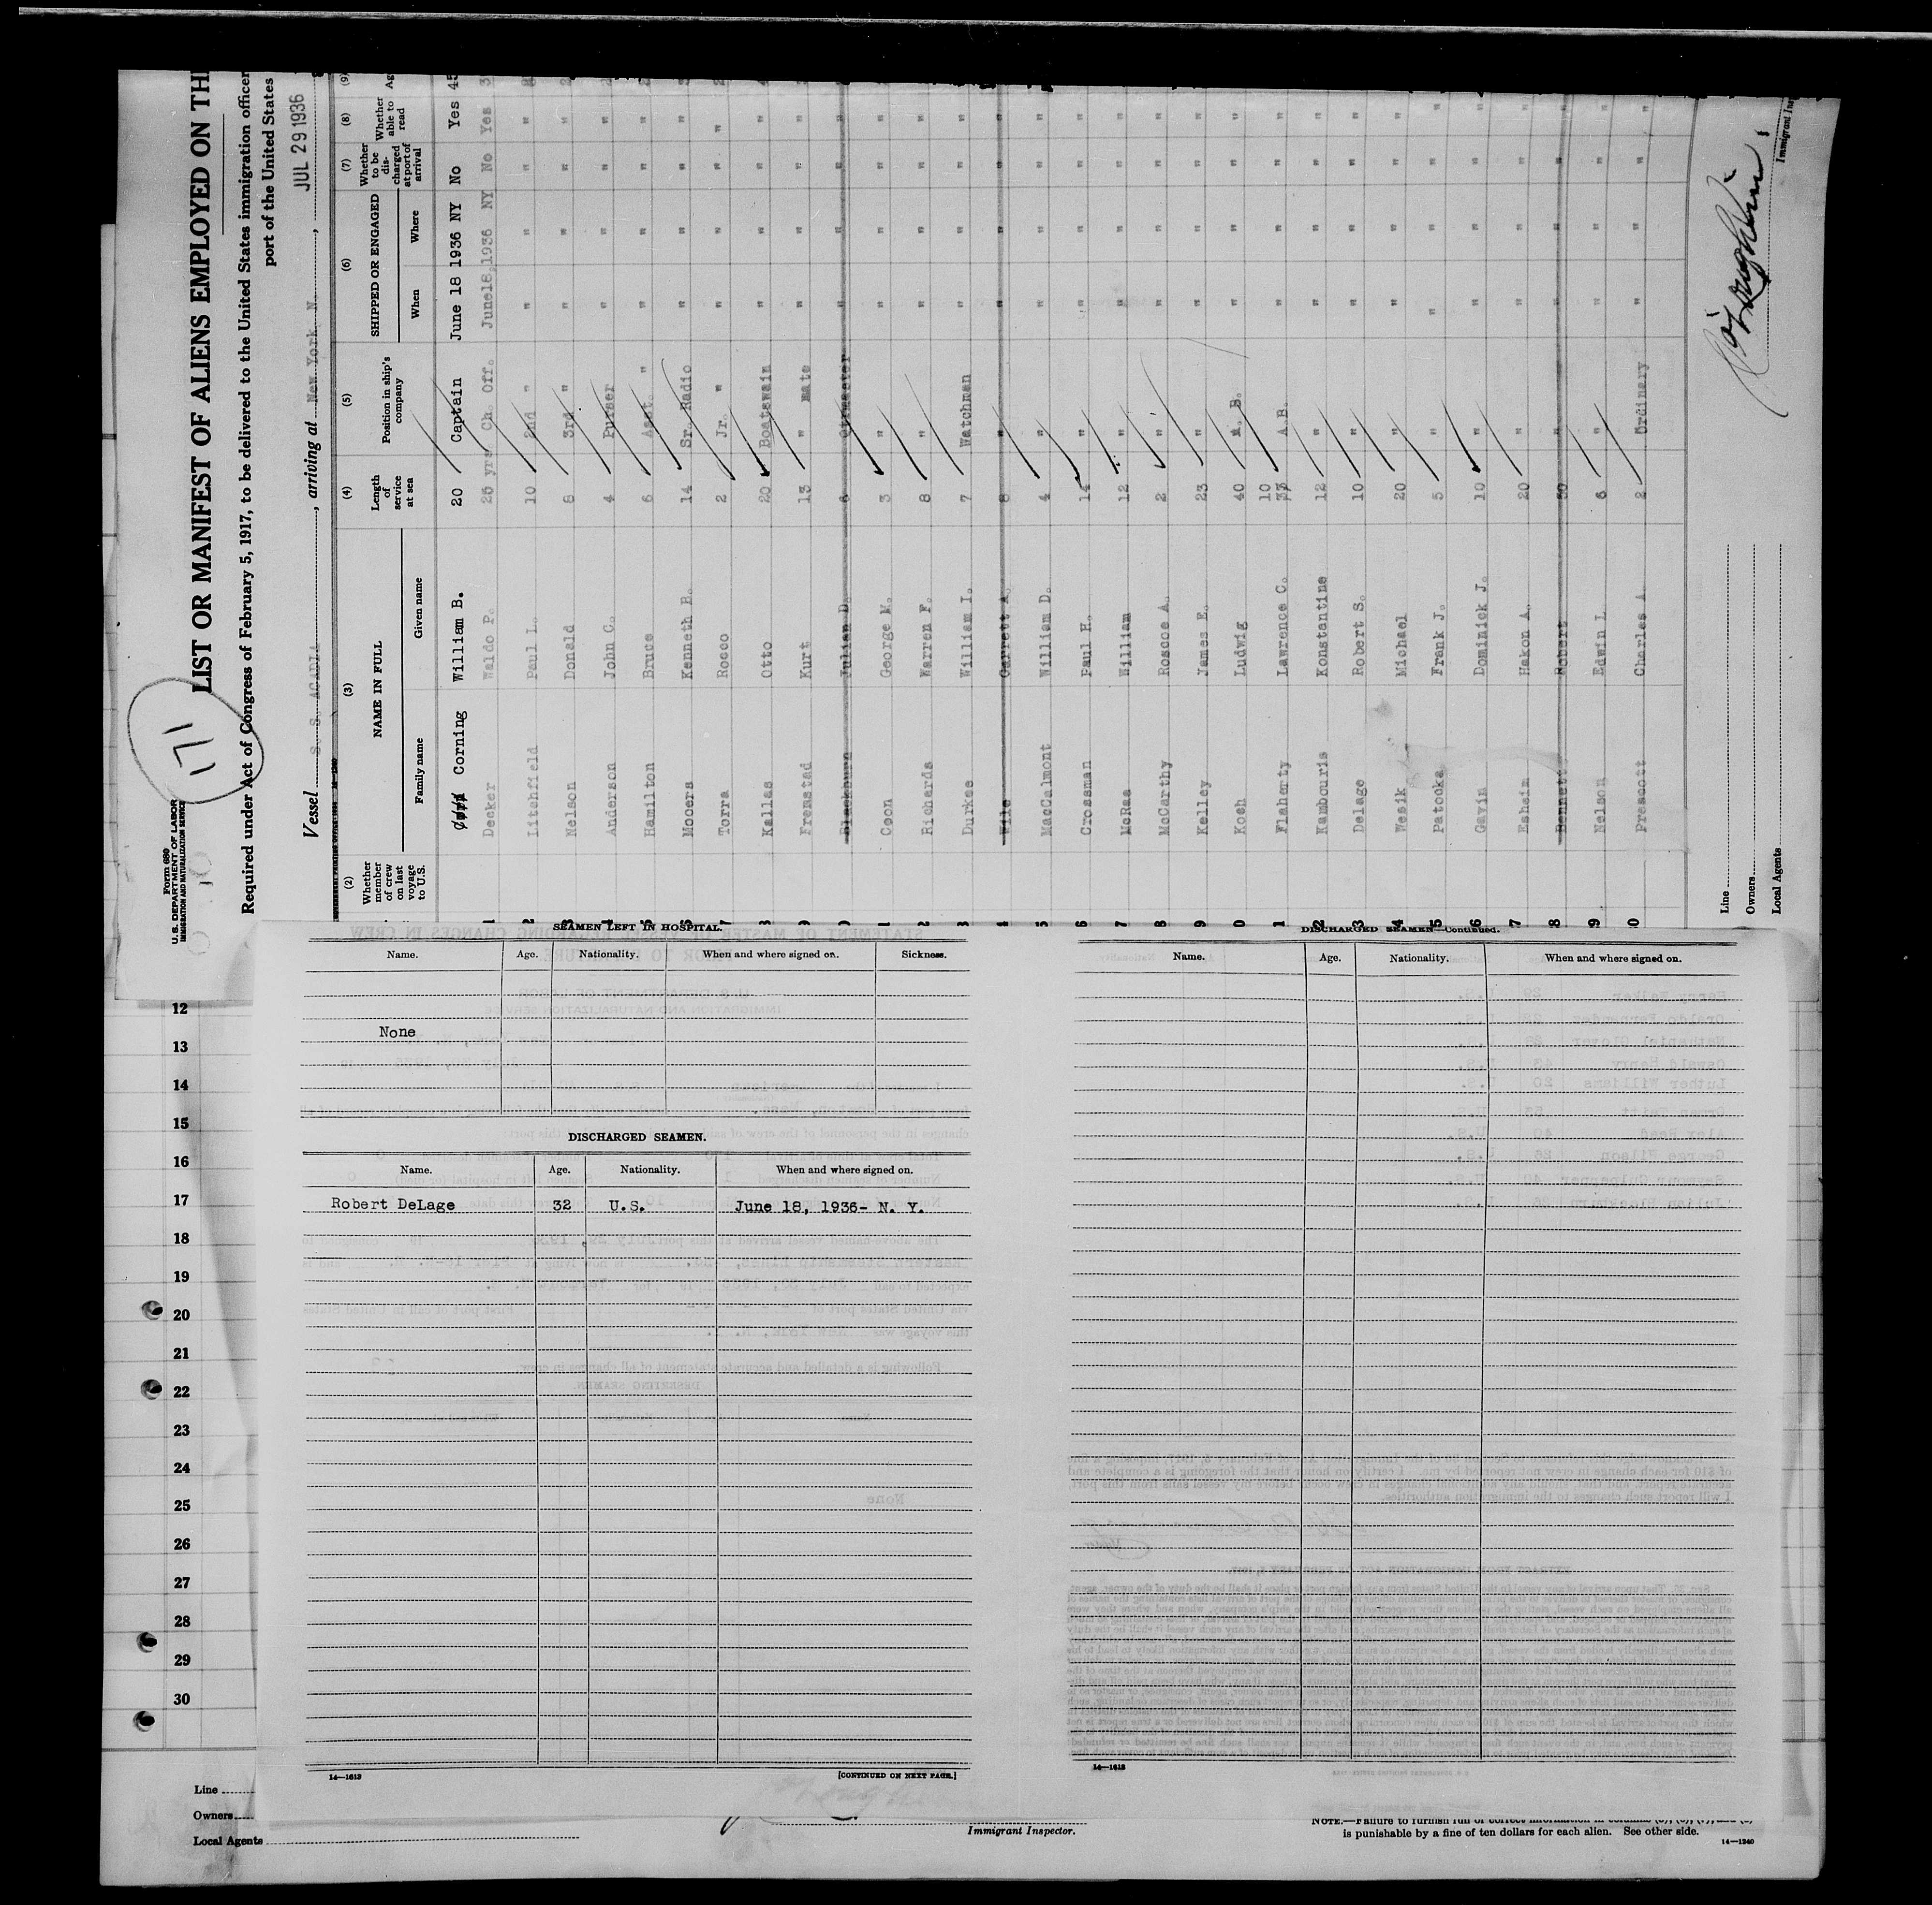 171
Form 680
U.S. DEPARTMENT OF LABOR
IMMIGRATION AND NATURALIZATION SERVICE
LIST OR MANIFEST OF ALIENS EMPLOYED ON TH
Required under Act of Congress of February 5, 1917, to be delivered to the United States immigration officer
port of the United States
Vessel S. S. ACADIA, arriving at New York N., JUL 29 1936
(2) (3) (4) (5) (6) (7) (8) (9)
Whether member of crew on last voyage to U.S. NAME IN FULL Length of service at sea Position in ship's company SHIPPED OR ENGAGED Whether to be discharged at port of arrival Whether able to read Ag
Family name Given name When Where
Corning William B. 20 Captain June 18 1936 NY No Yes 45
1 Decker Waldo P. 25 yrs Ch. Off. June18,1936 NY No Yes 3
2 Litchfield Paul L. 10 2nd " " " " "
3 Nelson Donald 8 3rd " " " " "
4 Anderson John C. 4 Purser " " " "
5 Hamilton Bruce 6 Asst. " " " " "
6 Mooers Kenneth B. 14 Sr. Radio " " " "
7 Torra Rocco 2 Jr. " " " " "
8 Kallas Otto 20 Boatswain " " " "
9 Fremstad Kurt 13 " mate " " " "
0 Blackburn Julian D. 6 Qtrmaster " " " "
1 Coon George M. 3 " " " " "
2 Richards Warren F. 8 " " " " "
3 Durkee William I. 7 Watchman " " " "
4 Wile Garrett A. 8 " " " " "
5 MacCalmont William D. 4 " " " " "
6 Crossman Paul H. 14 " " " " "
7 McRae William 12 " " " " "
8 McCarthy Roscoe A. 2 " " " " "
9 Kelley James E. 23 " " " " "
0 Koch Ludwig 40 A. B. " " " "
1 Flaherty Lawrence C. 10 33 A.B. " " " "
2 Kambouris Konstantine 12 " " " " "
3 Delage Robert S. 10 " " " " "
4 Wesik Michael 20 " " " " "
5 Patocka Frank J. 5 " " " " "
6 Gavin Dominick J. 10 " " " " "
7 Esheim Hakon A. 20 " " " " "
8 Bennett Robert 30 " " " " "
9 Nelson Edwin L 6 " " " " "
0 Prescott Charles A. 2 Ordinary " " " "
Line
Owners
Local Agents
SEAMEN LEFT IN HOSPITAL.
Name. Age. Nationality. When and where signed on. Sickness.
None
DISCHARGED SEAMEN.
Name. Age. Nationality. When and where signed on.
Robert DeLage 32 U.S. June 18, 1936- N. Y.
14—1613
[CONTINUED ON NEXT PAGE.]
DISCHARGED SEAMEN—Continued.
Name. Age. Nationality. When and where signed on.
14—1613
12
13
14
15
16
17
18
19
20
21
22
23
24
25
26
27
28
29
30
Line
Owners
Local Agents
Immigrant Inspector.
NOTE.—Failure to furnish full or correct information in columns
is punishable by a fine of ten dollars for each alien. See other side.
14—1240